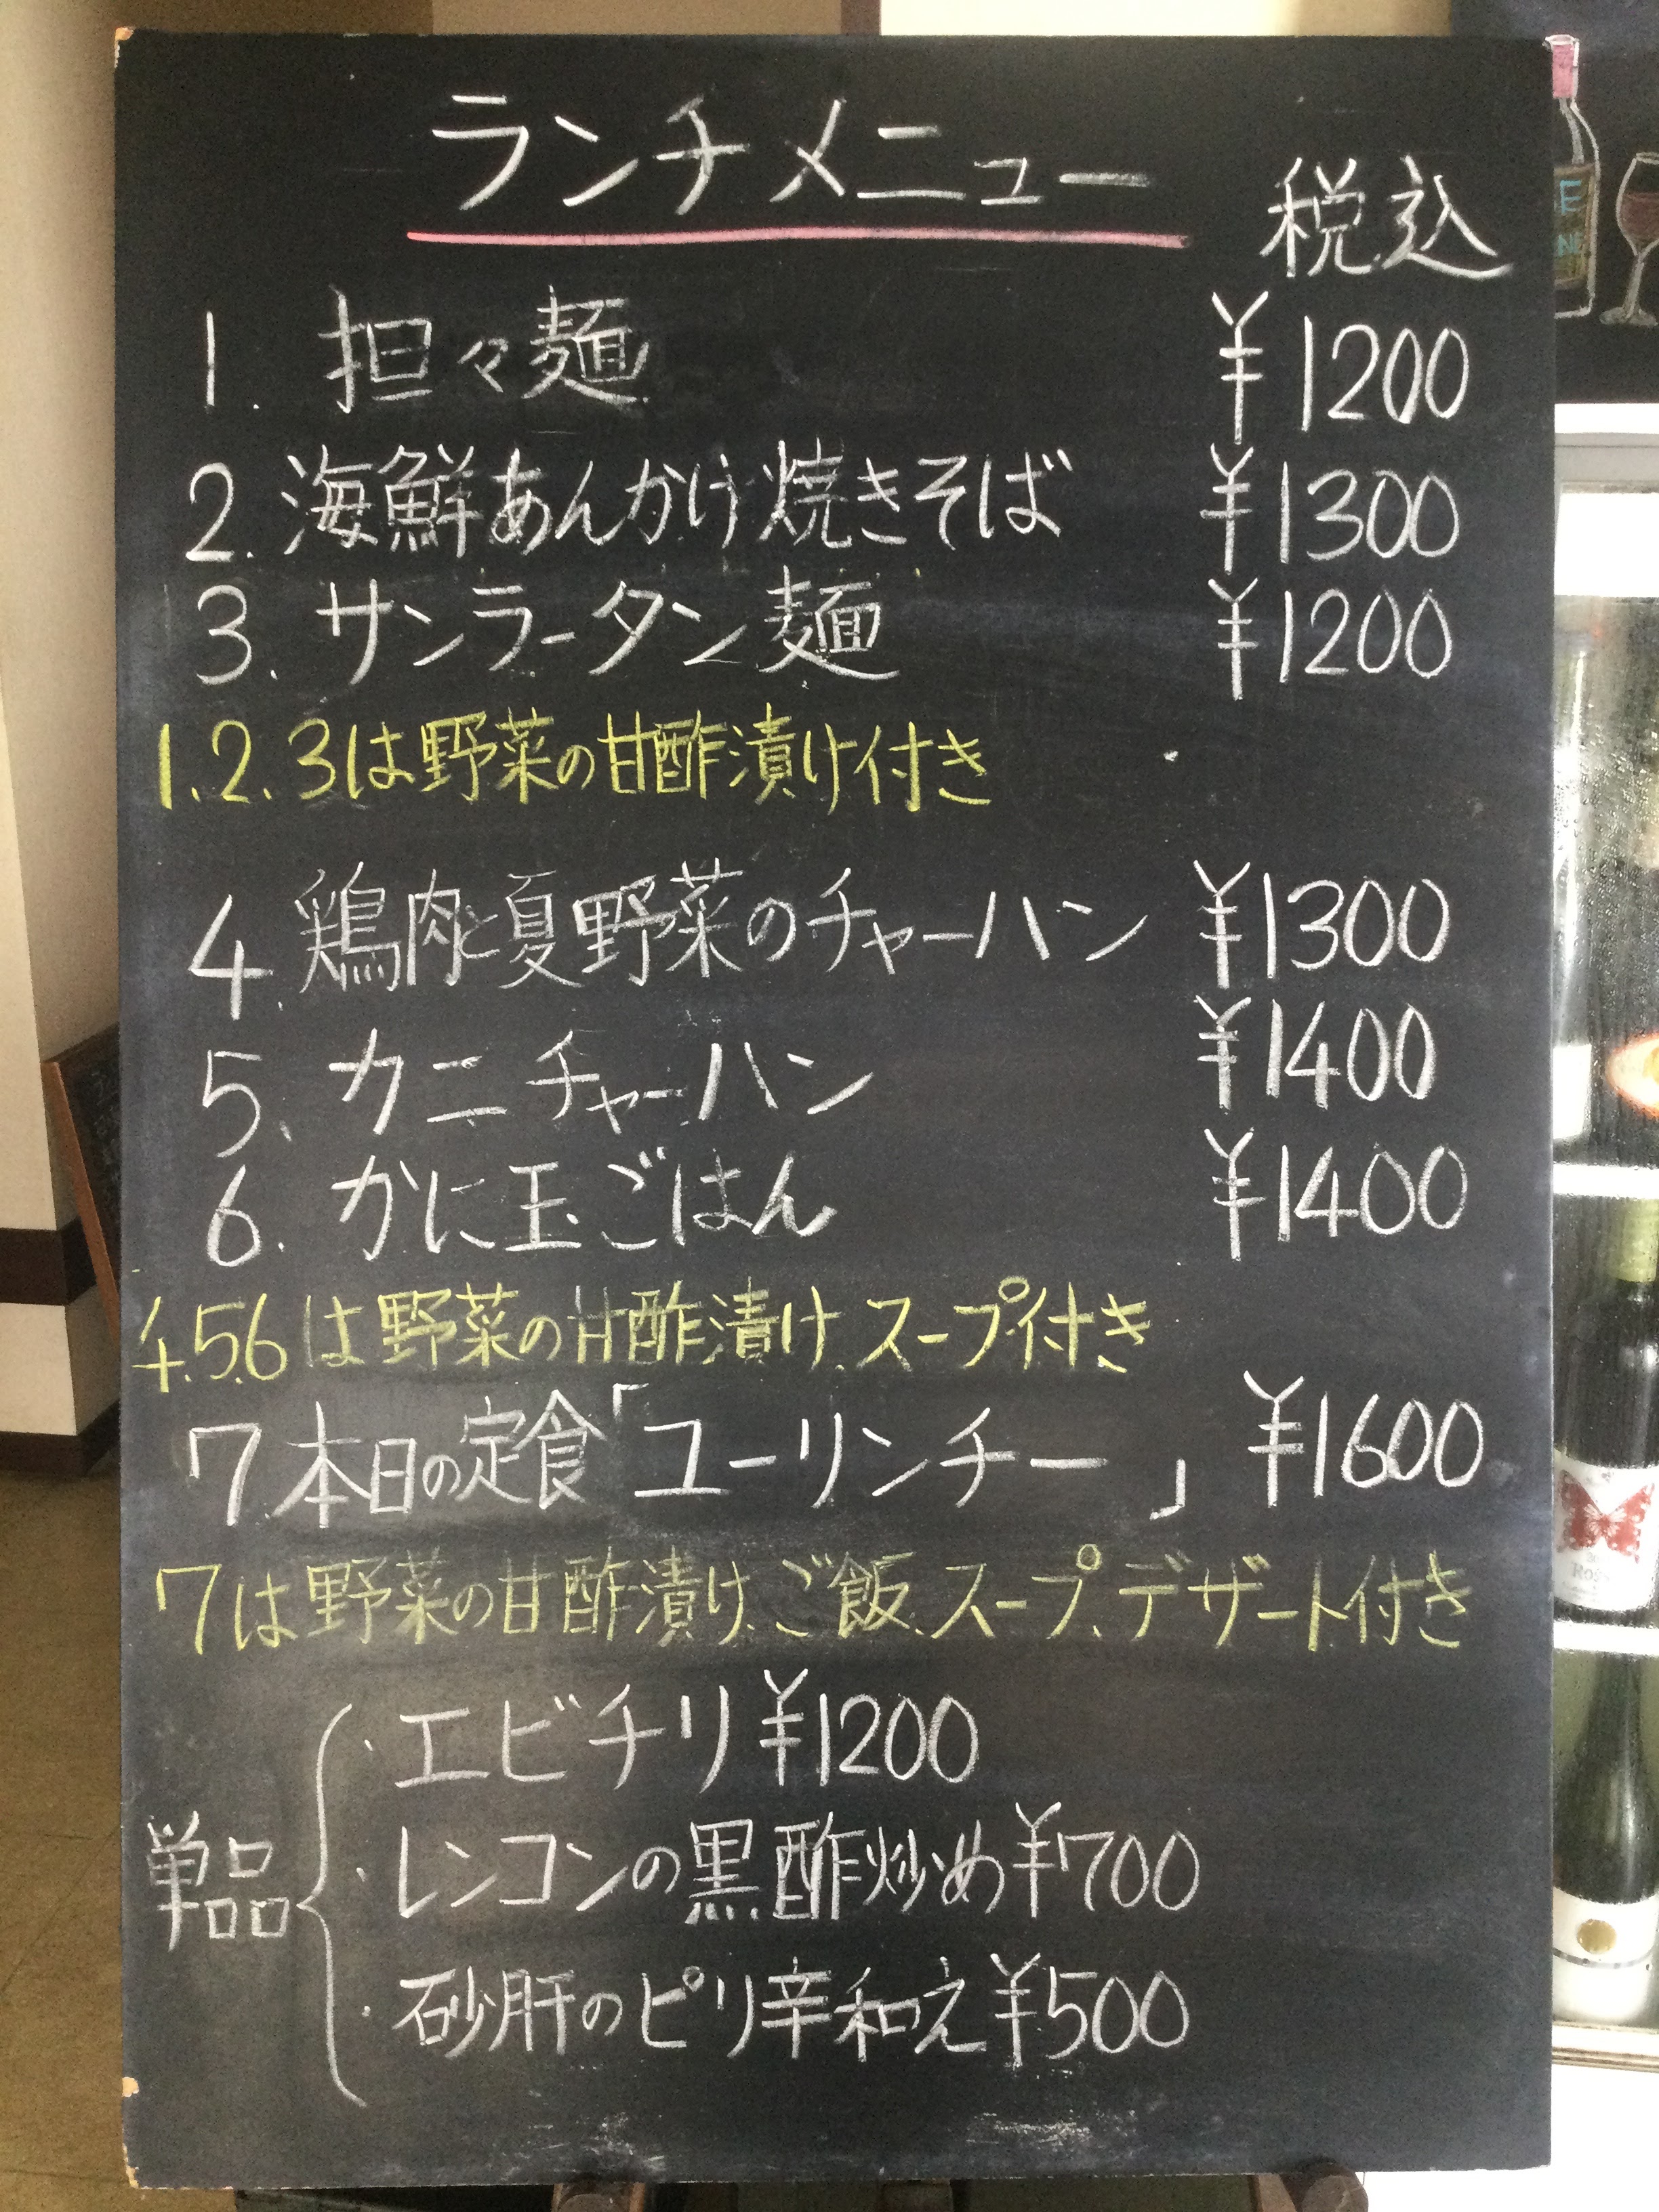 ランチメニュー
税込
1. 担々麺 ¥1200
2. 海鮮あんかけ焼きそば ¥1300
3. サンラータン麺 ¥1200
1.2.3は野菜の甘酢漬け付き
4. 鶏肉と夏野菜のチャーハン ¥1300
5. カニチャーハン ¥1400
6. かに玉ごはん ¥1400
4.5.6は野菜の甘酢漬け、スープ付き
7. 本日の定食「ユーリンチー」 ¥1600
7は野菜の甘酢漬け、ご飯、スープ、デザート付き
単品
・エビチリ ¥1200
・レンコンの黒酢炒め ¥700
・砂肝のピリ辛和え ¥500